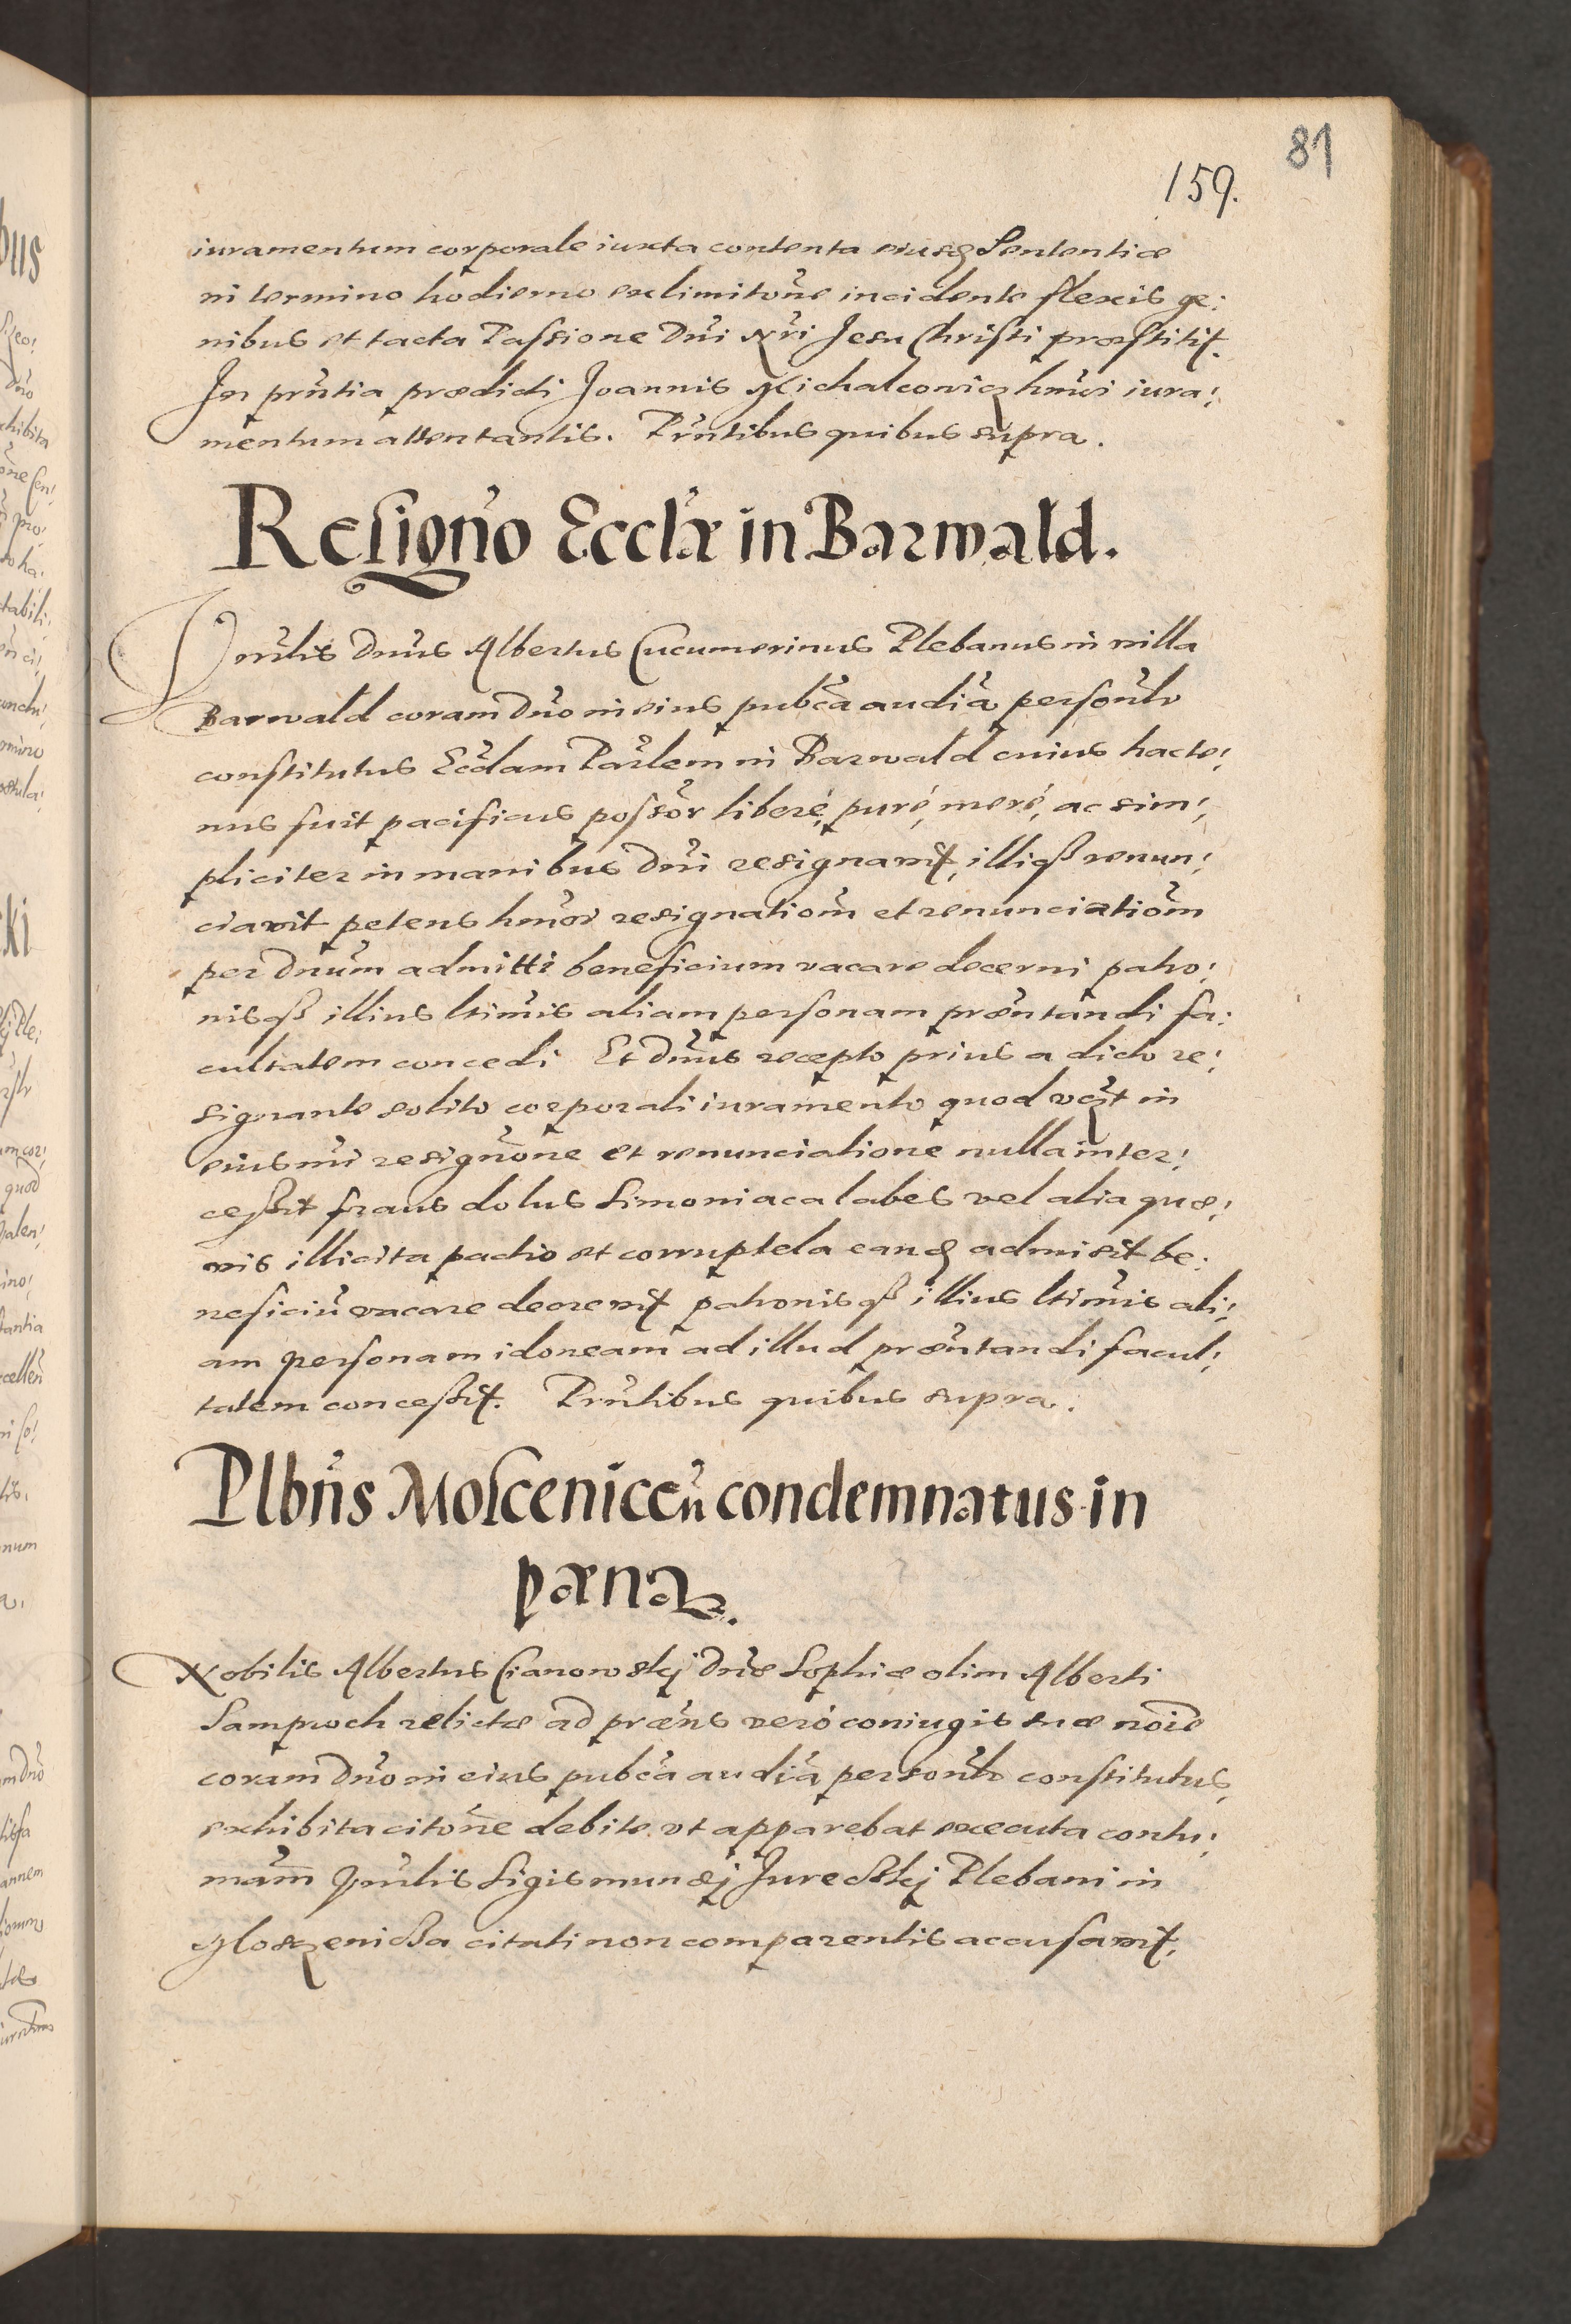 81
159.
iuramentum corporale iuxta contenta eiusq Sententiæ
in termino hodierno ex limitõne incidente flexis ge:
nibus et tacta Passione Dñi Nri Jesu Christi præstitit.
In pñtia prædicti Joannis Michalcouicz hmõi iura:
mentum attentantis. Pñtibus quibus supra.
Resignõ Ecclæ in Barwald.
Vnrlis Dnus Albertus Cucumerinus Plebanus in villa
Barwald coram Dño in eius pubca audia personlr
constitutus Ecclam Parlem in Barwald cuius hacte:
nus fuit pacificus possor liberé, puré, meré, ac sim:
pliciter in manibus Dñi resignavit, illiqß renun:
ciavit petens hmõi resignatiom et renunciatiom
per Dnum admitti beneficium vacare decerni patro:
nisqß illius ltimis aliam personam præntandi fa:
cultatem concedi Et Dnus recepto prius a dicto re:
signante solito corporali iuramento quod vczt in
eiusmi resignõne et renunciatione nulla inter:
ceßit fraus dolus Simoniaca labes vel alia quæ:
vis illicita pactio et corruptela eanq admisit be:
neficiũ vacare decrevit patronisqß illius ltimis ali:
am personam idoneam ad illud præntandi facul:
tatem conceßit. Pñtibus quibus supra.
Plbñs Mosceniceñ condemnatus in
pœna.
Nobilis Albertus Cianowskj Dnæ Sophiæ olim Alberti
Samproch relictæ ad præns veró coniugis suæ noie
coram Dño in eius pubca audia personlr constitutus,
exhibita citõne debite vt apparebat executa contu:
mam Vnrlis Sigismundj Jureckj Plebani in
Mosczenicza citati non comparentis accusavit,